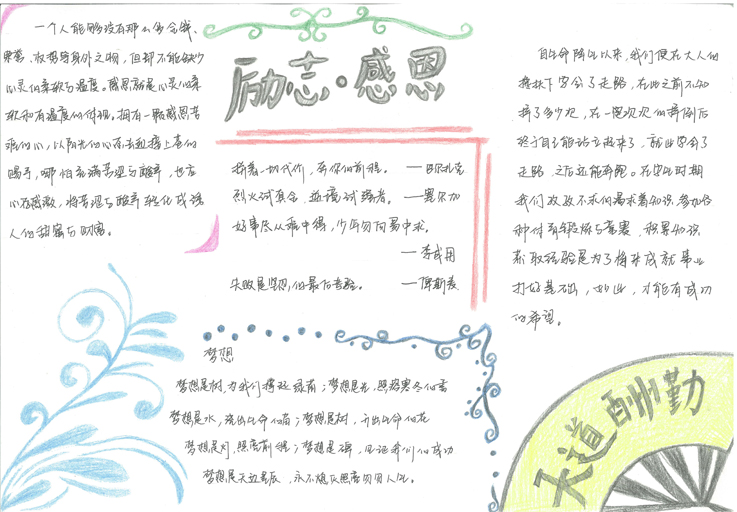 励志·感恩
一个人能够没有那么多金钱、
荣誉、权势等身外之物，但却不能缺少
心灵的柔软与温度。感恩就是心灵的柔
软和有温度的体现。拥有一颗感恩苦
难的心，以阳光的心态去迎接上苍的
赐予，哪怕充满苦涩与酸辛，也在
心存感激，将苦涩与酸辛轻化成诱
人的甜蜜与财富。
拼着一切代价，奔你的前程。—巴尔扎克
烈火试真金，逆境试强者。—塞尔加
好事尽从难中得，少年勿向易中求。
—李咸用
失败是坚忍的最后考验。—俾斯麦
梦想
梦想是树，为我们撑起绿荫；梦想是光，照亮寒冬的雪
梦想是水，流出生命的；梦想是树，开出生命的花
梦想是灯，照亮前程；梦想是碑，见证我们的成功
梦想是天边星辰，永不熄灭照亮
自生命降生以来，我们便在大人的
搀扶下学会了走路，在此之前不知
摔了多少次，在一次次的摔倒后
终于自己能站立起来了，就此学会了
走路，之后还能奔跑。在学生时期
我们孜孜不倦的渴求着知识，参加各
种体育锻炼与竞赛，积累知识
索取经验是为了将来成就事业
打好基础，如此，才能有成功
的希望。
天道酬勤